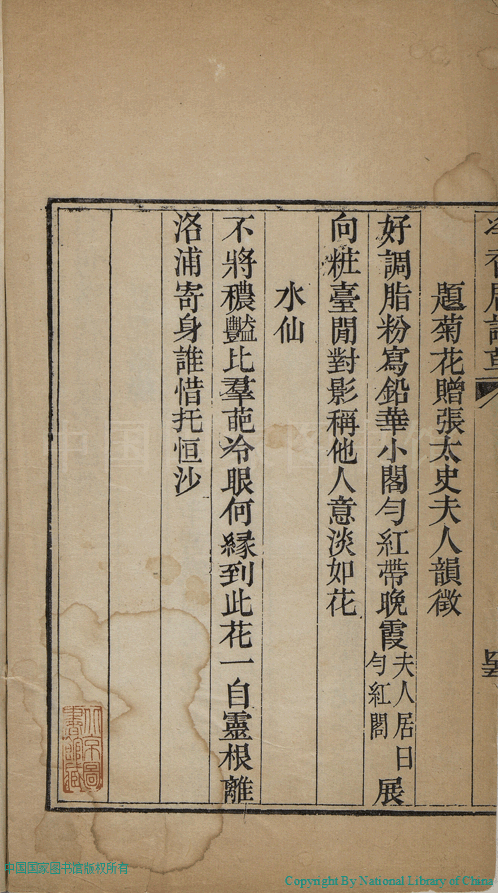 題菊花贈張太史夫人韻徵
好調脂粉寫鉛華小閣勻紅帶晚霞夫人居曰勻紅閣展
向粧臺閒對影稱他人意淡如花
水仙
不將穠豔比羣葩冷眼何緣到此花一自靈根離
洛浦寄身誰惜托恒沙
中国国家图书馆版权所有
Copyright By National Library of China